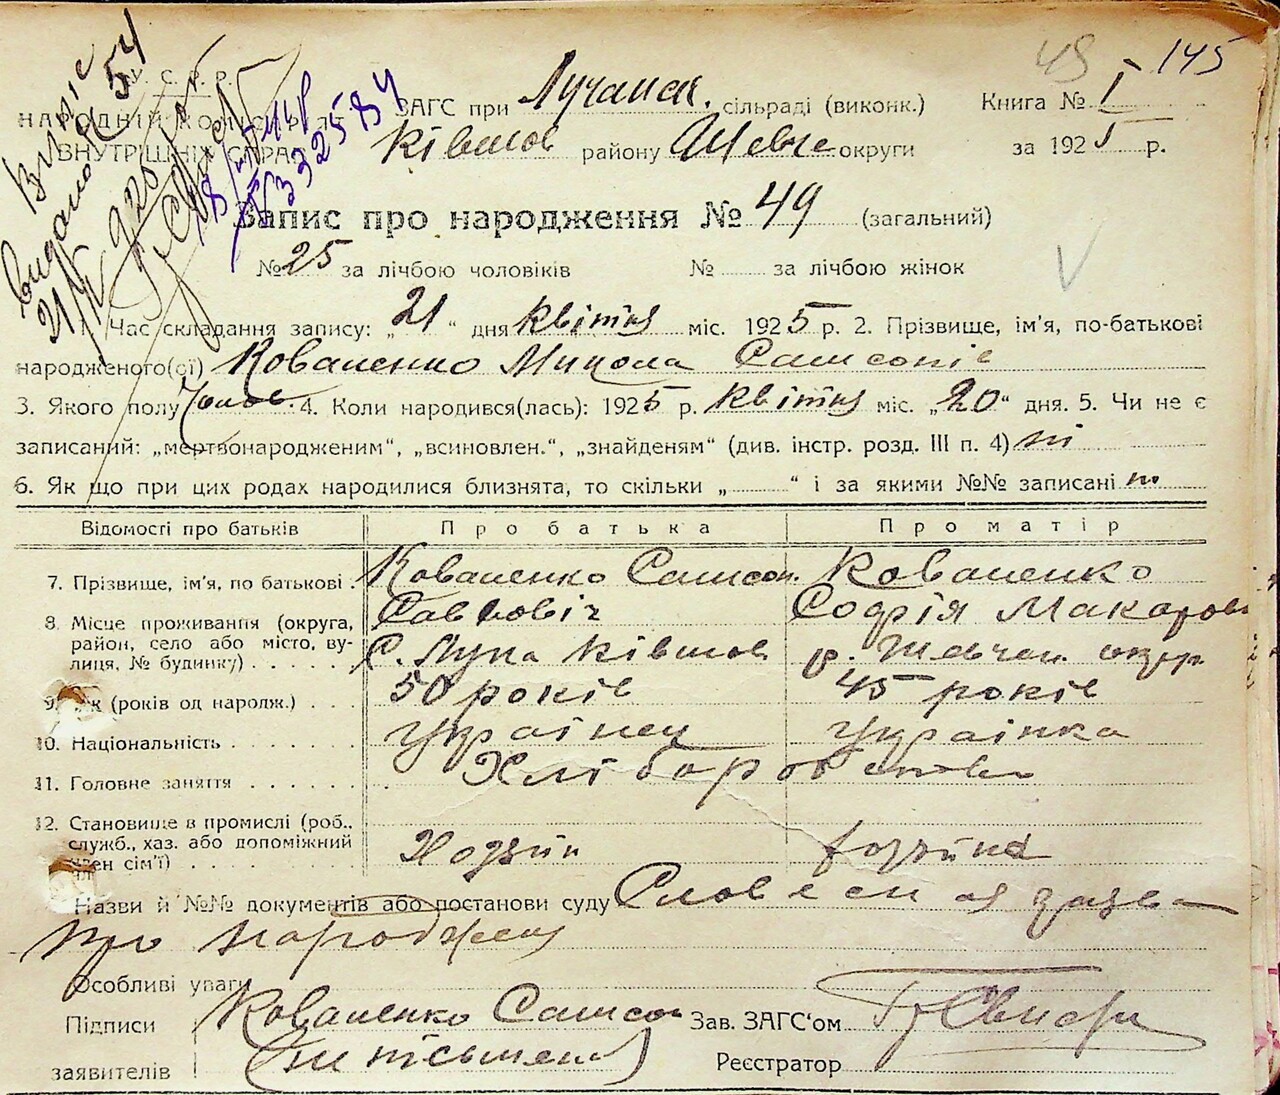 48 145
У. С. Р. Р.
НАРОДНІЙ КОМІСАРІЯТ
ВНУТРІШНІХ СПРАВ
Випис
видано
21/IV 925
ЗАГС при Лучанск. сільраді (виконк.)
Книга № I
Ківшов району Шевче округи
за 1925 р.
Запис про народження № 49 (загальний)
№ 25 за лічбою чоловіків № за лічбою жінок
Час складання запису: „21“ дня квітня міс. 1925 р. 2. Прізвище, ім’я, по-батькові
народженого(ої) Коваленко Микола Самсонів
3. Якого полу Чолов. 4. Коли народився(лась): 1925 р. квітня міс. „20“ дня. 5. Чи не є
записаний: „мертвонародженим“, „всиновлен.“, „знайденям“ (див. інстр. розд. III п. 4) ні
6. Як що при цих родах народилися близнята, то скільки „ “ і за якими №№ записані
Відомості про батьків Про батька Про матір
7. Прізвище, ім’я, по батькові . Коваленко Самсон. Коваленко
Савовіч Софія Макаров
8. Місце проживання (округа,
район, село або місто, ву-
лиця, № будинку) . . . . . С. Лука Ківшов р. Шевчен. окр
9. Вік (років од народж.) . . . 50 років 45 років
10. Національність . . . . . . Українец Українка
11. Головне заняття . . . . . . Хліборобство
12. Становище в промислі (роб.,
служб., хаз. або допоміжний
член сім’ї) . . . . Ходзяїн ходзяїка
Назви й №№ документів або постанови суду Словесная заява
про народженя
Особливі уваги
Підписи Коваленко Самсон Зав. ЗАГС‘ом
заявителів (ни пісьмен) Реєстратор